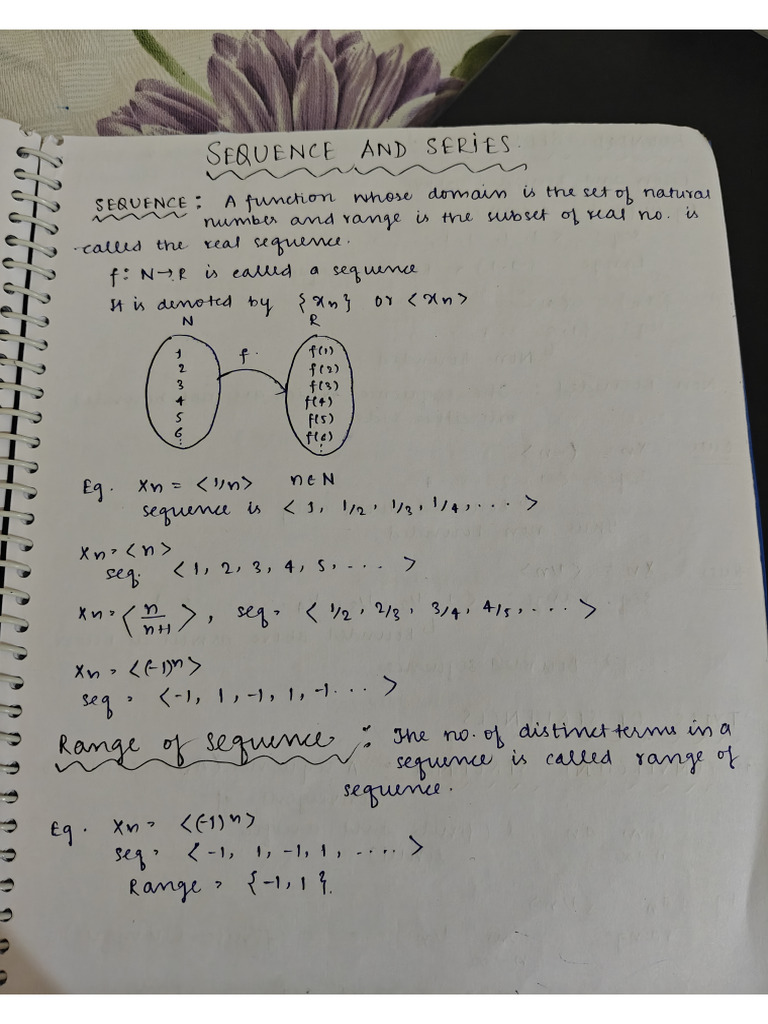 SEQUENCE AND SERIES.
SEQUENCE: A function whose domain is the set of natural
number and range is the subset of real no. is
called the real sequence.
f: N→R is called a sequence
It is denoted by {xn} or <xn>
N R
f.
1 f(1)
2 f(2)
3 f(3)
4 f(4)
5 f(5)
6 f(6)
⋮ ⋮
Eg. Xn = <1/n> n∈N
sequence is < 1, 1/2, 1/3, 1/4, .... >
Xn = <n>
seq. <1, 2, 3, 4, 5, .... >
Xn = <n/n+1>, seq = < 1/2, 2/3, 3/4, 4/5, .... >
Xn = <(-1)n>
seq = <-1, 1, -1, 1, -1.... >
Range of sequence: The no. of distinct terms in a
sequence is called range of
sequence.
Eg. Xn = <(-1)n>
seq = <-1, 1, -1, 1, ..... >
Range = {-1, 1}.